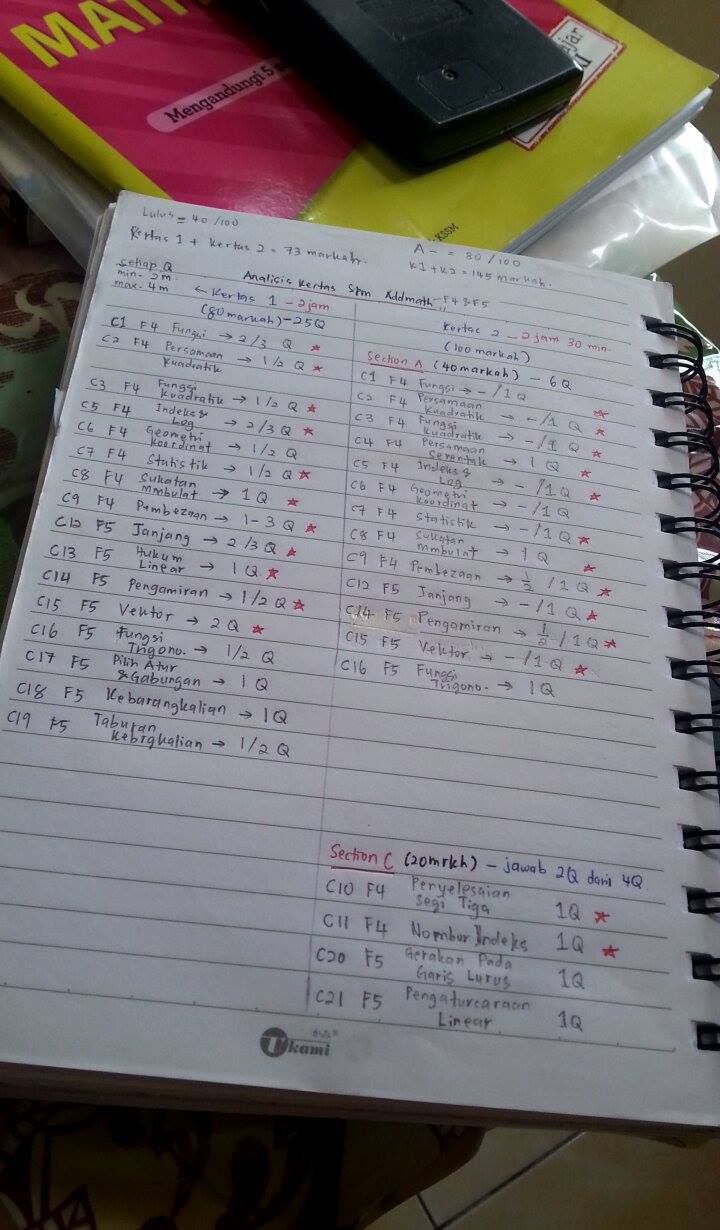 MATH
Mengandungi 5
KSSM
Lulus = 40/100
Kertas 1 + Kertas 2 = 73 markah.
A- = 80/100
K1 + K2 = 145 markah.
Setiap Q
min- 2m
max- 4m
Analisis Kertas Spm Addmath - F4 & F5
← Kertas 1 - 2jam
(80markah) - 25Q
C1 F4 Fungsi → 2/3 Q ★
C2 F4 Persamaan Kuadratik → 1/2 Q ★
C3 F4 Fungsi Kuadratik → 1/2 Q ★
C5 F4 Indeks & Log → 2/3 Q ★
C6 F4 Geometri Koordinat → 1/2 Q
C7 F4 Statistik → 1/2 Q ★
C8 F4 Sukatan Mmbulat → 1 Q ★
C9 F4 Pembezaan → 1-3 Q ★
C12 F5 Janjang → 2/3 Q ★
C13 F5 Hukum Linear → 1 Q ★
C14 F5 Pengamiran → 1/2 Q ★
C15 F5 Vektor → 2 Q ★
C16 F5 Fungsi Trigono. → 1/2 Q
C17 F5 Pilih Atur & Gabungan → 1 Q
C18 F5 Kebarangkalian → 1Q
C19 F5 Taburan Kebrgkalian → 1/2 Q
Kertas 2 - 2 jam 30 min.
(100 markah)
Section A (40markah) - 6Q
C1 F4 Fungsi → -/1 Q
C2 F4 Persamaan Kuadratik → -/1 Q ★
C3 F4 Fungsi Kuadratik → -/1 Q ★
C4 F4 Persamaan Serentak → 1 Q ★
C5 F4 Indeks & Log → -/1Q ★
C6 F4 Geometri Koordinat → -/1Q
C7 F4 Statistik → -/1Q ★
C8 F4 Sukatan Mmbulat → 1 Q ★
C9 F4 Pembezaan → 1/2 /1 Q ★
C12 F5 Janjang → -/1 Q ★
C14 F5 Pengamiran → 1/2 /1Q ★
C15 F5 Vektor → -/1Q ★
C16 F5 Fungsi Trigono. → 1Q
Section C (20mrkh) - jawab 2Q dari 4Q
C10 F4 Penyelesaian Segi Tiga 1Q ★
C11 F4 Nombor Indeks 1Q ★
C20 F5 Gerakan Pada Garis Lurus 1Q
C21 F5 Pengaturcaraan Linear 1Q
Ukami